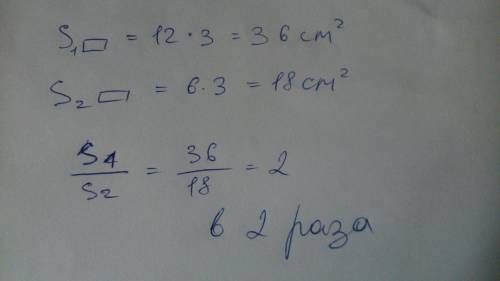 S₁▭ = 12 · 3 = 36 cm²
S₂▭ = 6 · 3 = 18 cm²
S₁/S₂ = 36/18 = 2
в 2 раза